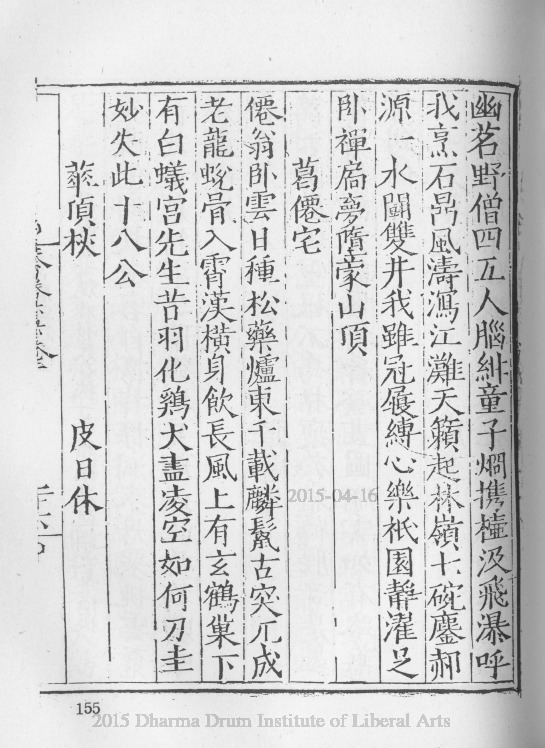 幽茗野僧四五人腦紺童子携榼汲飛瀑呼
我烹石鼎風濤瀉江灘天籟起林嶺七碗鏖郝
源一水鬬雙井我雖冠屨縛心樂祇園靜濯足
卧禪扃夢墮蒙山頂
葛僊宅
僊翁卧雲日種松藥爐東千載麟鬣古突兀成
老龍蛻骨入霄漢橫身飲長風上有玄鶴巢下
有白蟻宮先生昔羽化鷄犬盡凌空如何刀圭
妙失此十八公
華頂杖 皮日休
155
2015-04-16
2015 Dharma Drum Institute of Liberal Arts